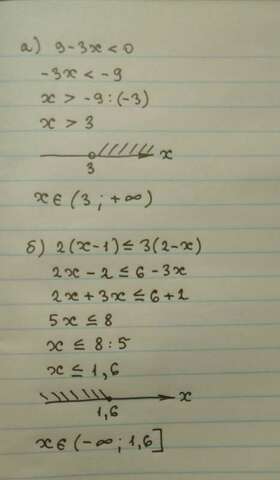 а) 9-3x<0
-3x < -9
x > -9:(-3)
x > 3
x
3
x∈(3; +∞)
б) 2(x-1)≤3(2-x)
2x-2≤6-3x
2x+3x≤6+2
5x≤8
x≤8:5
x≤1,6
x
1,6
x∈(-∞; 1,6]